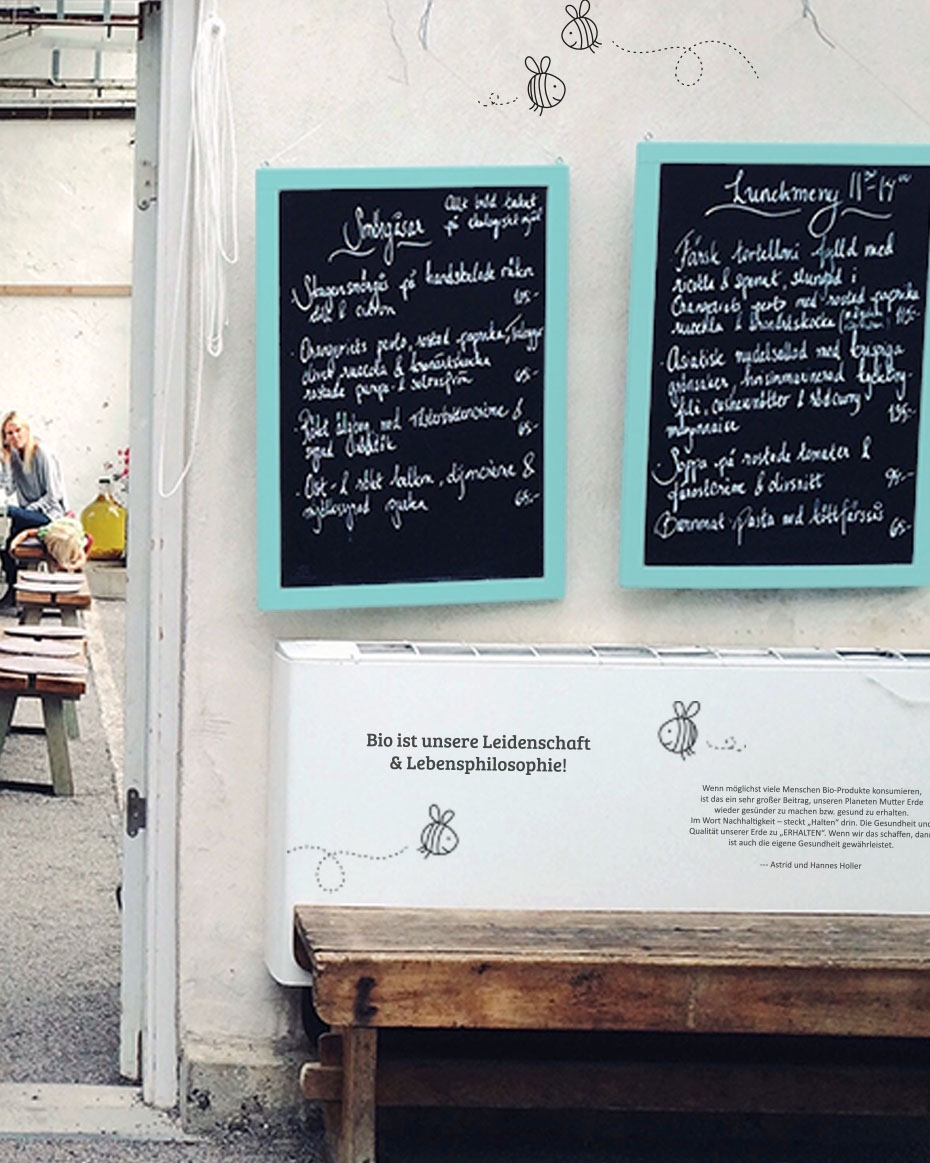 Smörgåsar
Allt bröd bakat
på ekologiskt mjöl
Skagensmörgås på handskalade räkor
dill & citron
105:-
Orangeriets pesto, rostad paprika,
oliver, ruccola & kronärtskocka
rostade pumpa- & solrosfrön
65:-
Rökt älgtjog med Västerbottencrème &
syrad
65:-
Ost- & rökt, dijoncrème &
syrad gurka
65:-
Lunchmeny 11³⁰-14⁰⁰
Färsk tortellini fylld med
ricotta & spenat, slungad i
Orangeriets pesto med rostad paprika
ruccola & kronärtskocka 115:-
Asiatisk nudelsallad med krispiga
grönsaker, kyckling-
filé, cashewnötter & röd curry
majonnaise 135:-
Soppa på rostade tomater &
färskostcrème & olivsnitt 95:-
Barnmat Pasta med köttfärssås 65:-
Bio ist unsere Leidenschaft
& Lebensphilosophie!
Wenn möglichst viele Menschen Bio-Produkte konsumieren,
ist das ein sehr großer Beitrag, unseren Planeten Mutter Erde
wieder gesünder zu machen bzw. gesund zu erhalten.
Im Wort Nachhaltigkeit – steckt „Halten" drin. Die Gesundheit und
Qualität unserer Erde zu „ERHALTEN". Wenn wir das schaffen, dann
ist auch die eigene Gesundheit gewährleistet.
--- Astrid und Hannes Holler